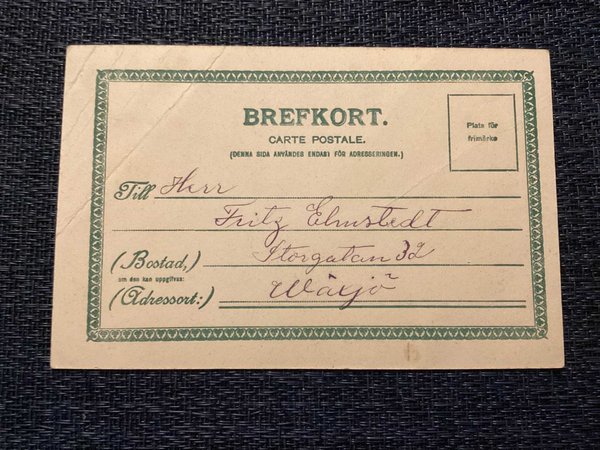 BREFKORT.
CARTE POSTALE.
(DENNA SIDA ANVÄNDES ENDAST FÖR ADRESSERINGEN.)
Plats för
frimärke
Till Herr
Fritz Elmstedt
(Bostad,) Storgatan 32
om den kan uppgifvas:
(Adressort:) Wäxjö